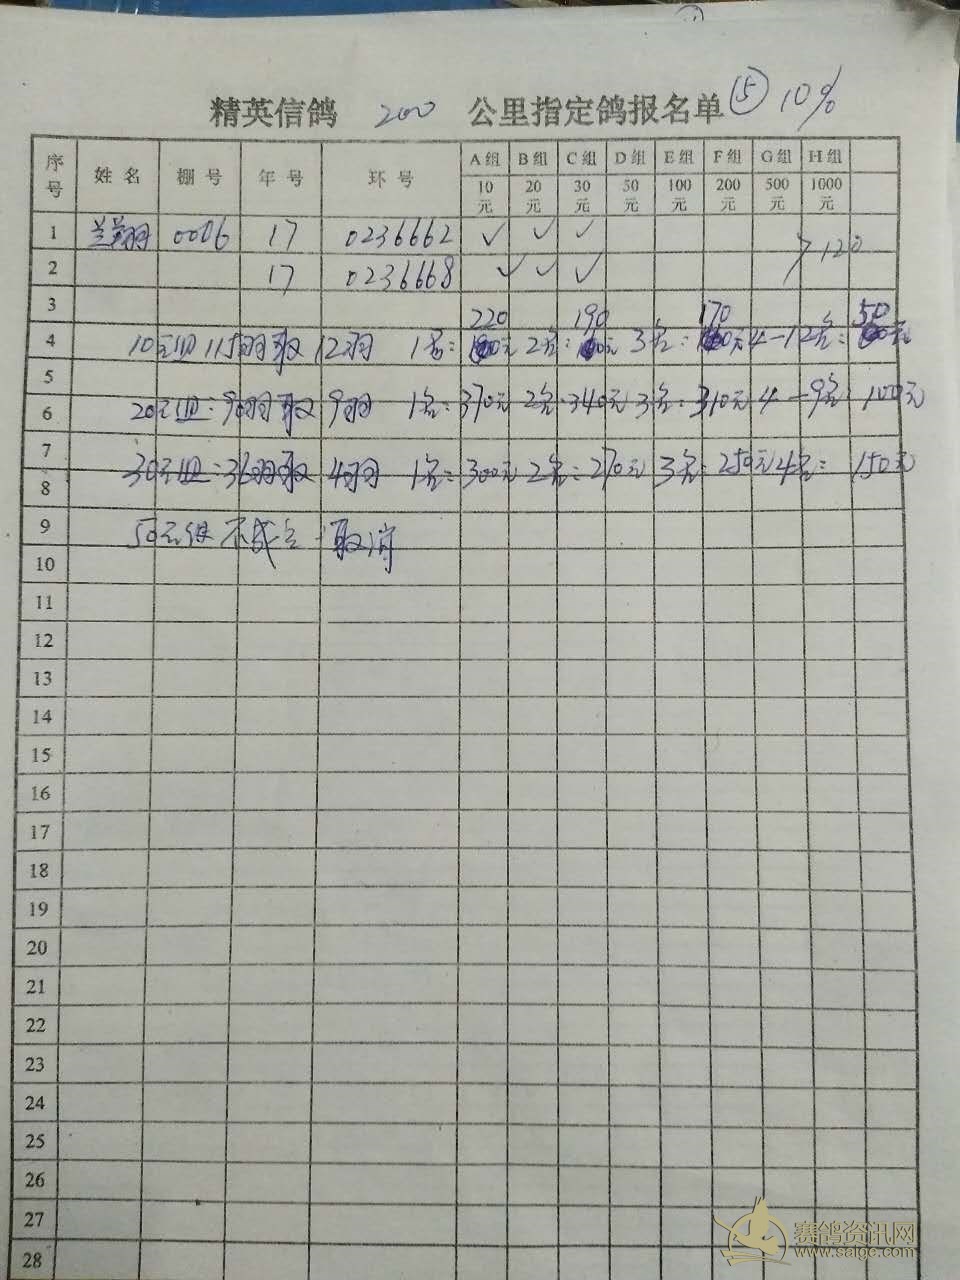 精英信鸽 200 公里指定鸽报名单 ⑤ 10%
序号 姓名 棚号 年号 环号 A组 B组 C组 D组 E组 F组 G组 H组
10元 20元 30元 50元 100元 200元 500元 1000元
1 兰翔 0006 17 0236662 ✓ ✓ ✓
120
2 17 0236668 ✓ ✓ ✓
3 220 190 170 50
4 10元组 115羽取12羽 1名: 元 2名: 元 3名: 元 4—12名: 元
5
6 20元组:90羽取9羽 1名:370元 2名:340元 3名:310元 4—9名:100元
7
30元组:36羽取4羽 1名:300元 2名:270元 3名:250元 4名:150元
8
9 50元组不成立 取消
10
11
12
13
14
15
16
17
18
19
20
21
22
23
24
25
26
27
28
赛鸽资讯网
www.saigc.com